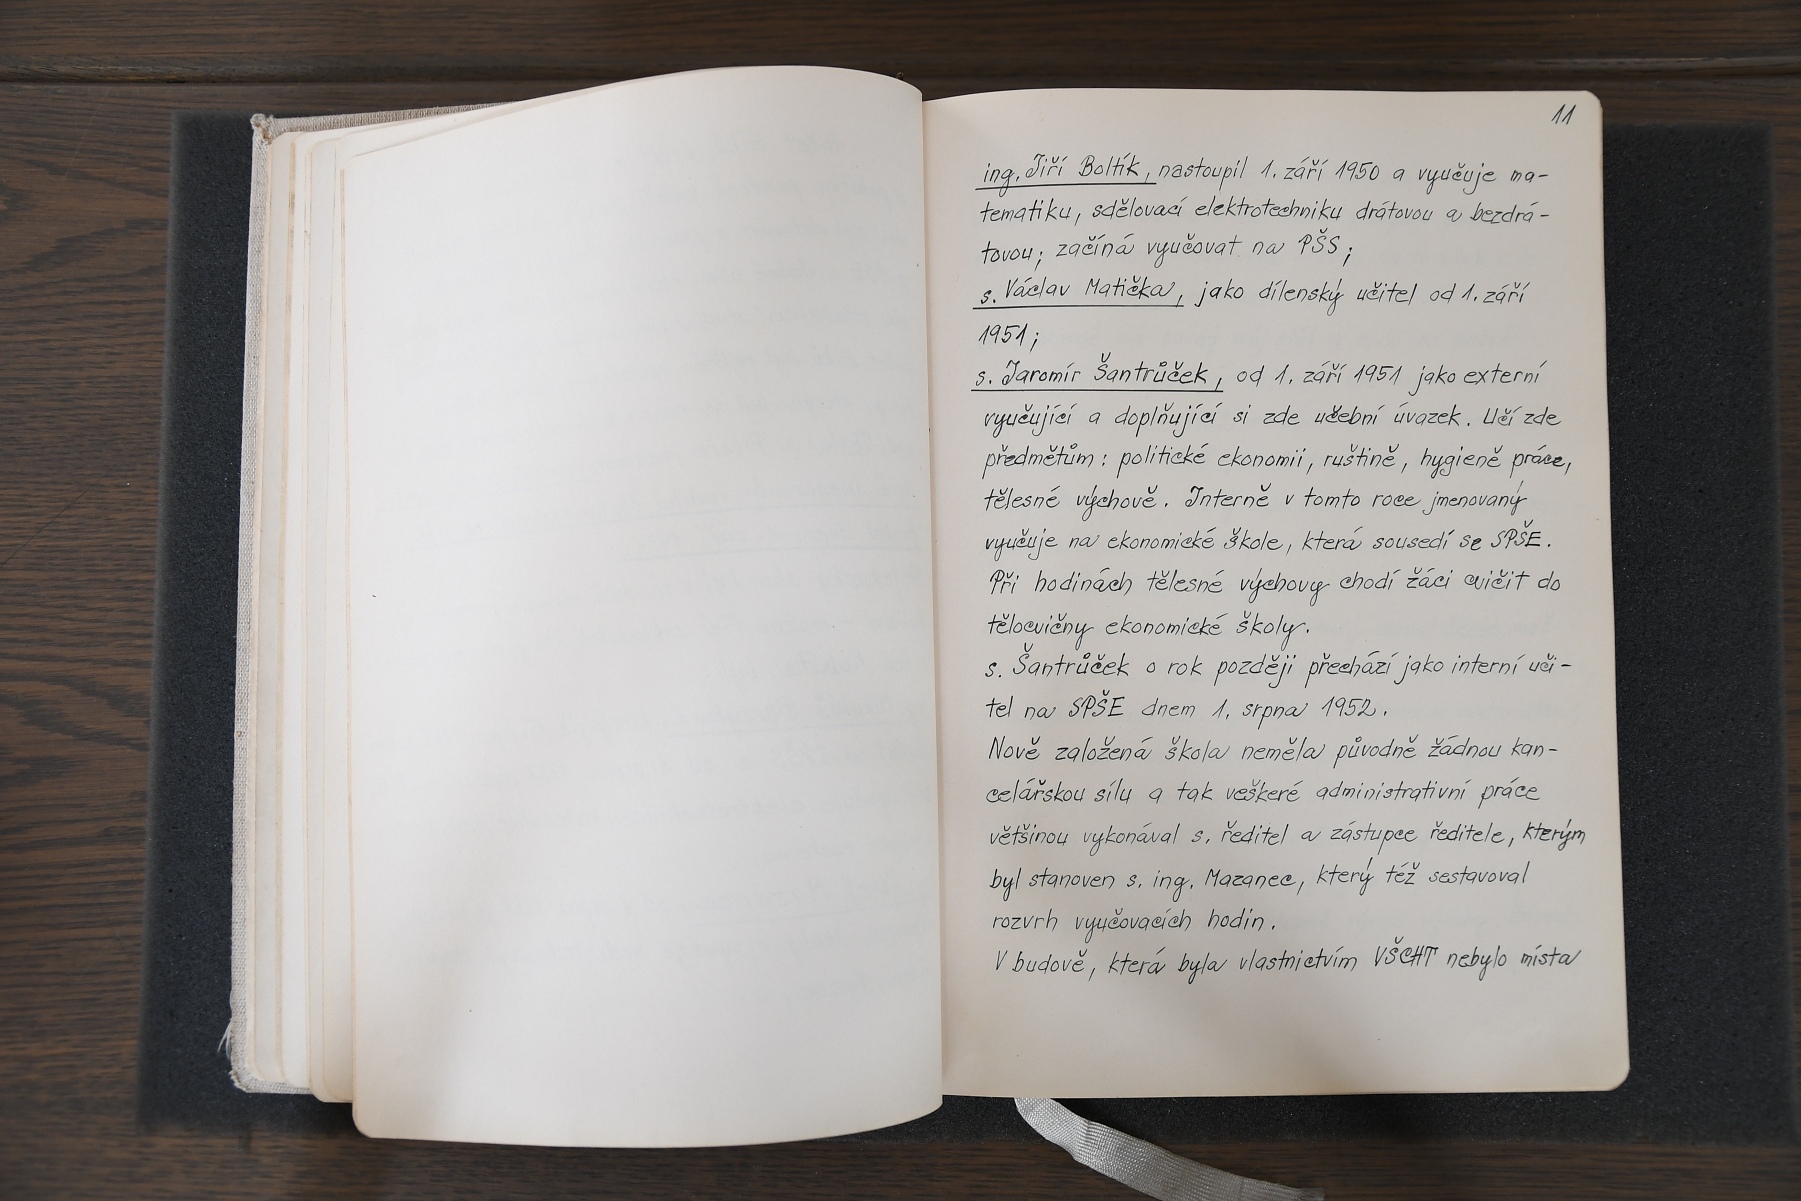 11
ing. Jiří Boltík, nastoupil 1. září 1950 a vyučuje ma-
tematiku, sdělovací elektrotechniku drátovou a bezdrá-
tovou; začíná vyučovat na PŠS;
s. Václav Matička, jako dílenský učitel od 1. září
1951;
s. Jaromír Šantrůček, od 1. září 1951 jako externí
vyučující a doplňující si zde učební úvazek. Učí zde
předmětům: politické ekonomii, ruštině, hygieně práce,
tělesné výchově. Interně v tomto roce jmenovaný
vyučuje na ekonomické škole, která sousedí se SPŠE.
Při hodinách tělesné výchovy chodí žáci cvičit do
tělocvičny ekonomické školy.
s. Šantrůček o rok později přechází jako interní uči-
tel na SPŠE dnem 1. srpna 1952.
Nově založená škola neměla původně žádnou kan-
celářskou sílu a tak veškeré administrativní práce
většinou vykonával s. ředitel a zástupce ředitele, kterým
byl stanoven s. ing. Mazanec, který též sestavoval
rozvrh vyučovacích hodin.
V budově, která byla vlastnictvím VŠCHT nebylo místa